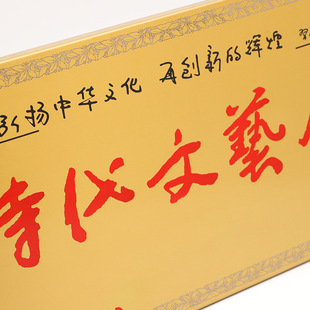 弘扬中华文化 再创新的辉煌
時代文藝